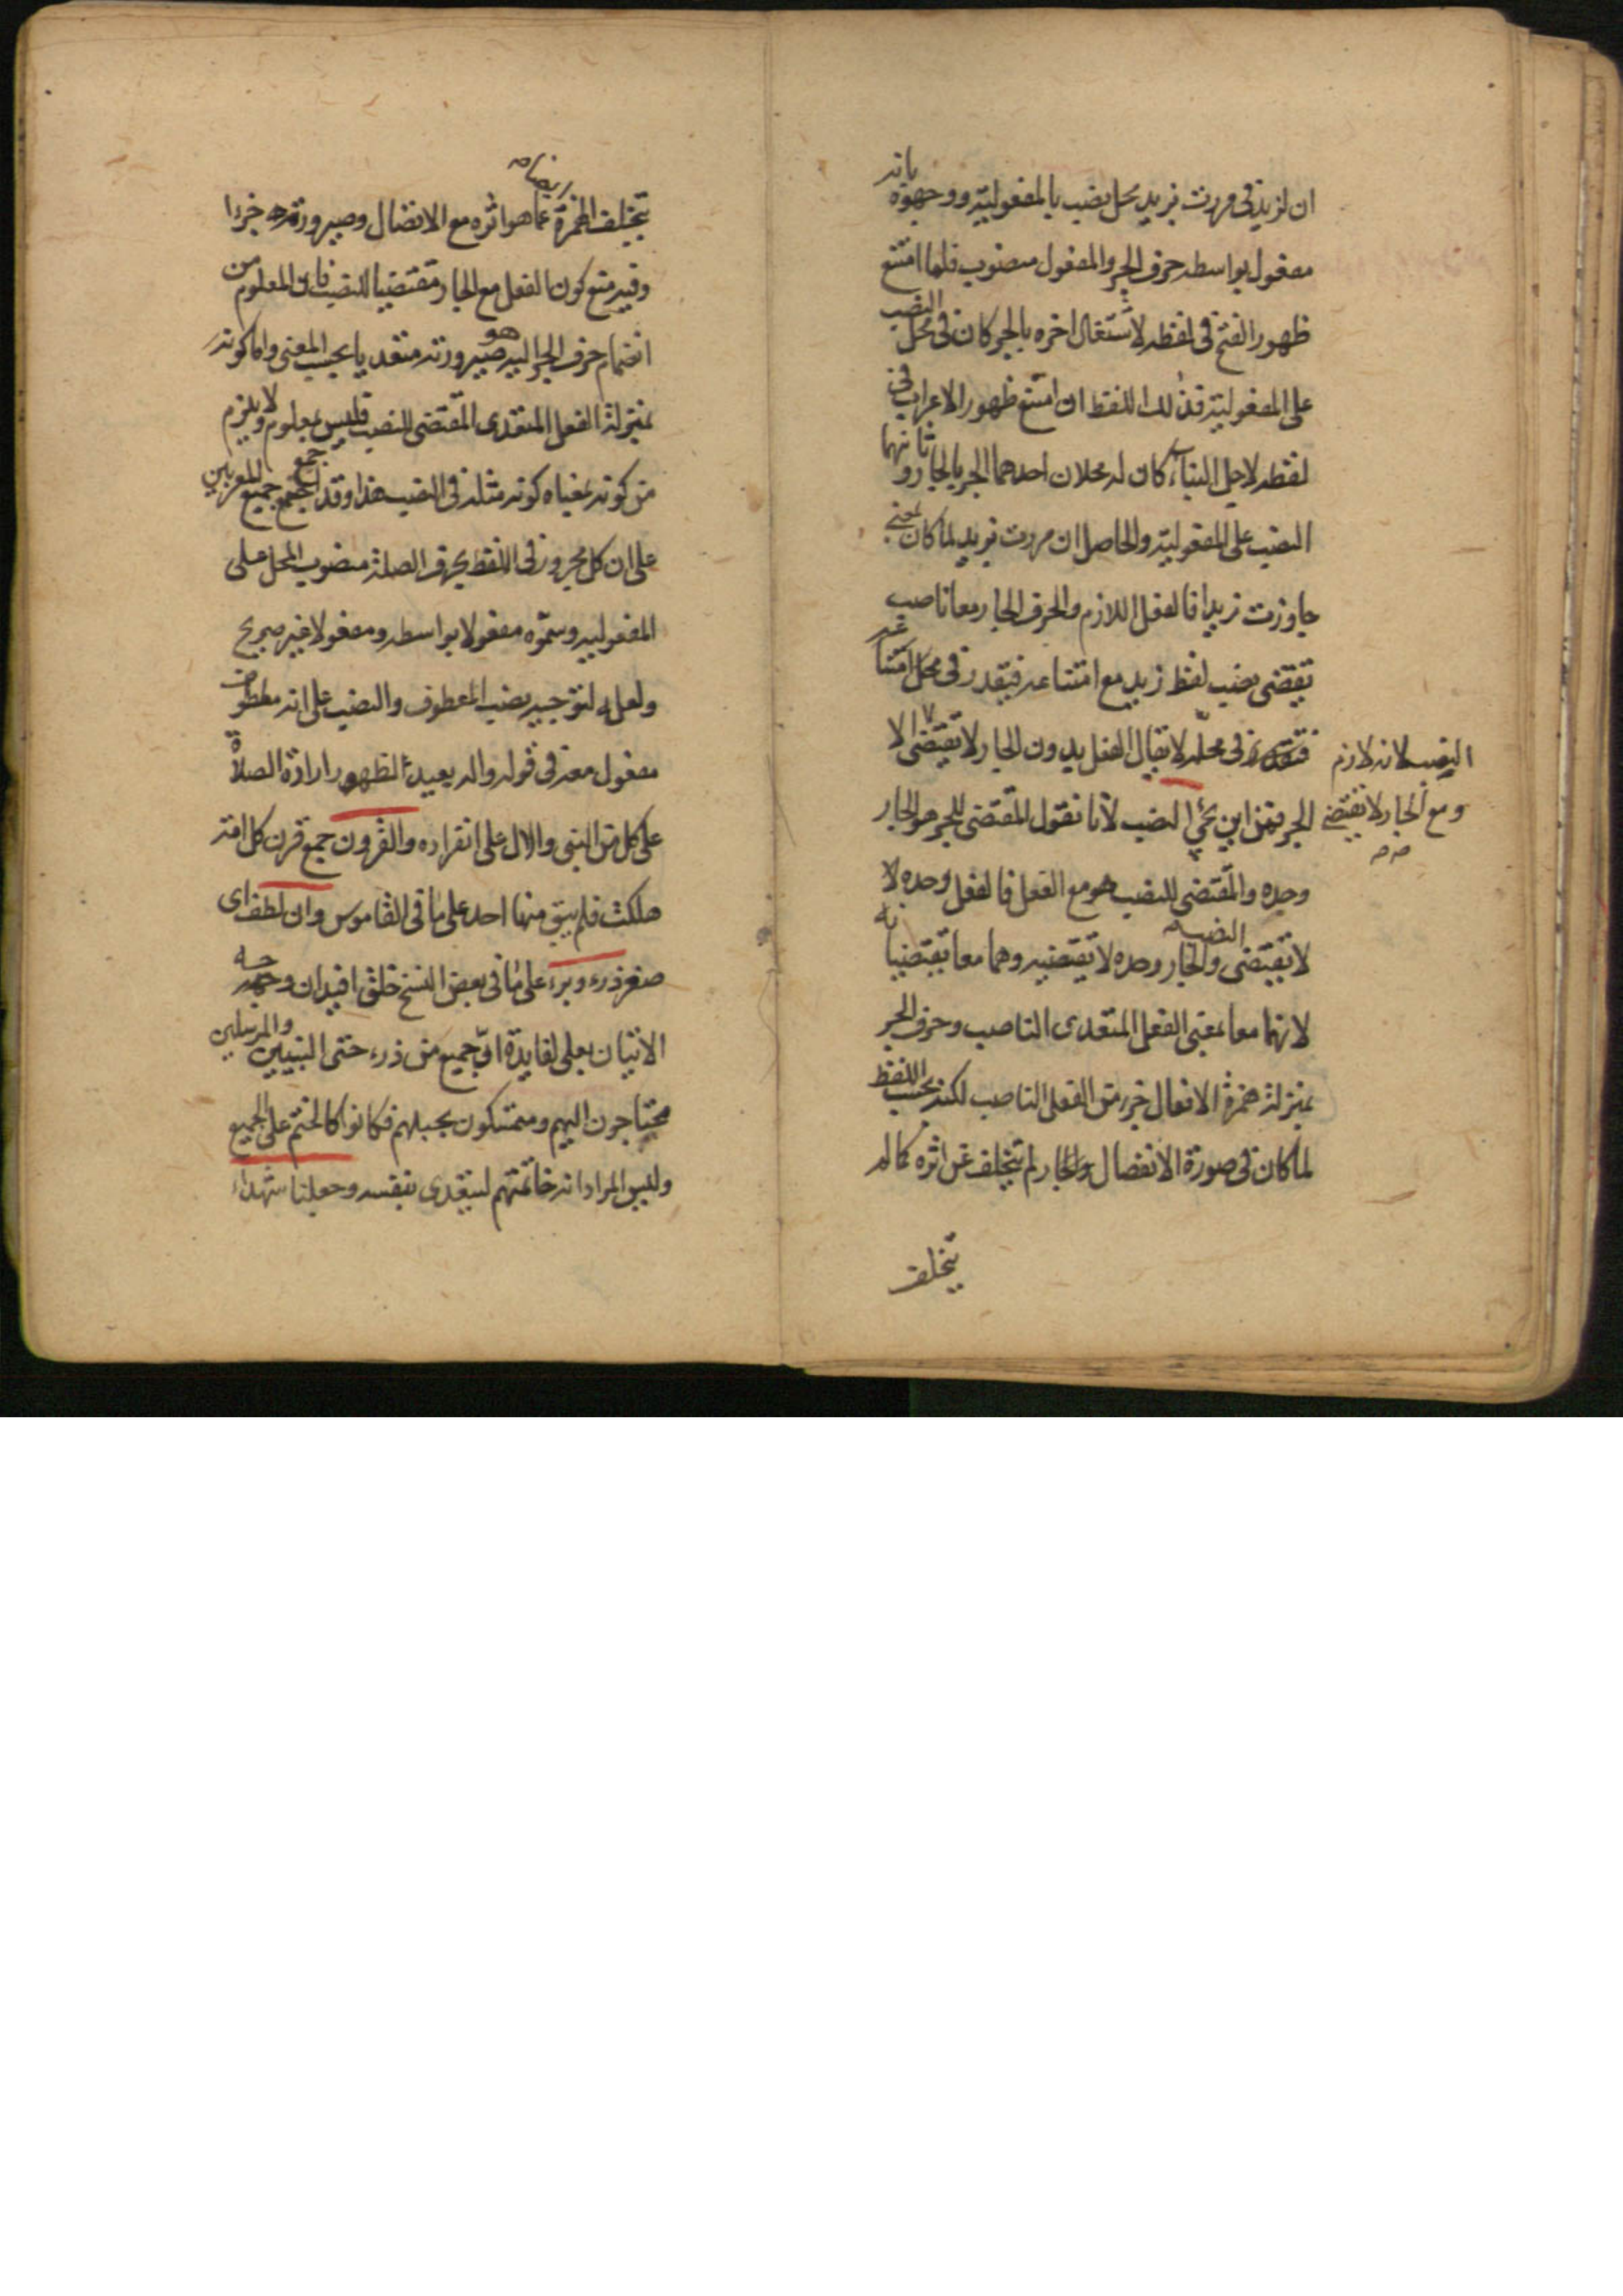 ان لزيد في مررت بزيد محل نصب بالمفعولية ووجهوه بانه
مفعول بواسطه حرف الجر والمفعول منصوب فلما امتنع
ظهور الفتح في لفظه لاشتغال اخره بالجر كان في محل النصب
على المفعولية فذلك اللفظ ان امتنع ظهور الاعراب في
لفظه لاجل البناء كان له محلان احدهما الجر بالجار وثانيهما
النصب على المفعولية والحاصل ان مررت بزيد لما كان بمعنى
جاوزت زيدا فالفعل اللازم والحرف الجار معا ناصب
يقتضي نصب لفظ زيد مع امتناعه فيقدر في محل امتناعه
في محله لا يقال الفعل بدون الجار لا يقتضى الا
النصب لانه لازم
ومع الجار لا يقتضي
الجر فمن اين يجئ النصب لانا نقول المقتضى للجر هو الجار
وحده والمقتضى للنصب هو مع الفعل فالفعل وحده لا
لا يقتضى النصب والجار وحده لا يقتضيه وهما معا يقتضيانه
لانهما معا بمعنى الفعل المتعدى الناصب وحرف الجر
بمنزلة همزة الافعال جزء من الفعل الناصب لكنه بحسب اللفظ
لما كان في صورة الانفصال والجار لم يتخلف عن اثره كما لم
يتخلف
يتخلف الهمزة ايضا عما هو اثره مع الاتصال وصيرورته جزءا
وفيه منع كون الفعل مع الجار مقتضيا للنصب فان المعلوم من
انضمام حرف الجر اليه هو صيرورته متعديا بحسب المعنى واما كونه
بمنزلة الفعل المتعدى المقتضى للنصب فليس بمعلوم ولا يلزم
من كونه بمعناه كونه مثله في النصب هذا وقد اجمع جميع المعربين
على ان كل مجرور في اللفظ بحرف الصلة منصوب المحل على
المفعوليه وسموه مفعولا بواسطه ومفعولا غير صريح
ولعل لتوجيه نصب المعطوف والنصب على انه معطوف
مفعول معه في قوله واله بعيد الظهور ارادة الصلاة
على كل من النبى والال على انفراده والقرون جمع قرن كل امة
هلكت فلم يبق منها احد على ما في القاموس وان لطف اى
صغر ذرء وبرء على ما في بعض النسخ خلق افيدان وجه
الاتيان بعلى لفايدة اي جميع من ذرء حتى النبيين والمرسلين
محتاجون اليهم ومتمسكون بحبلهم فكانوا كالختم على الجميع
وليس المراد انه خاتمتهم ليتعدى بنفسه وجعلنا شهداء